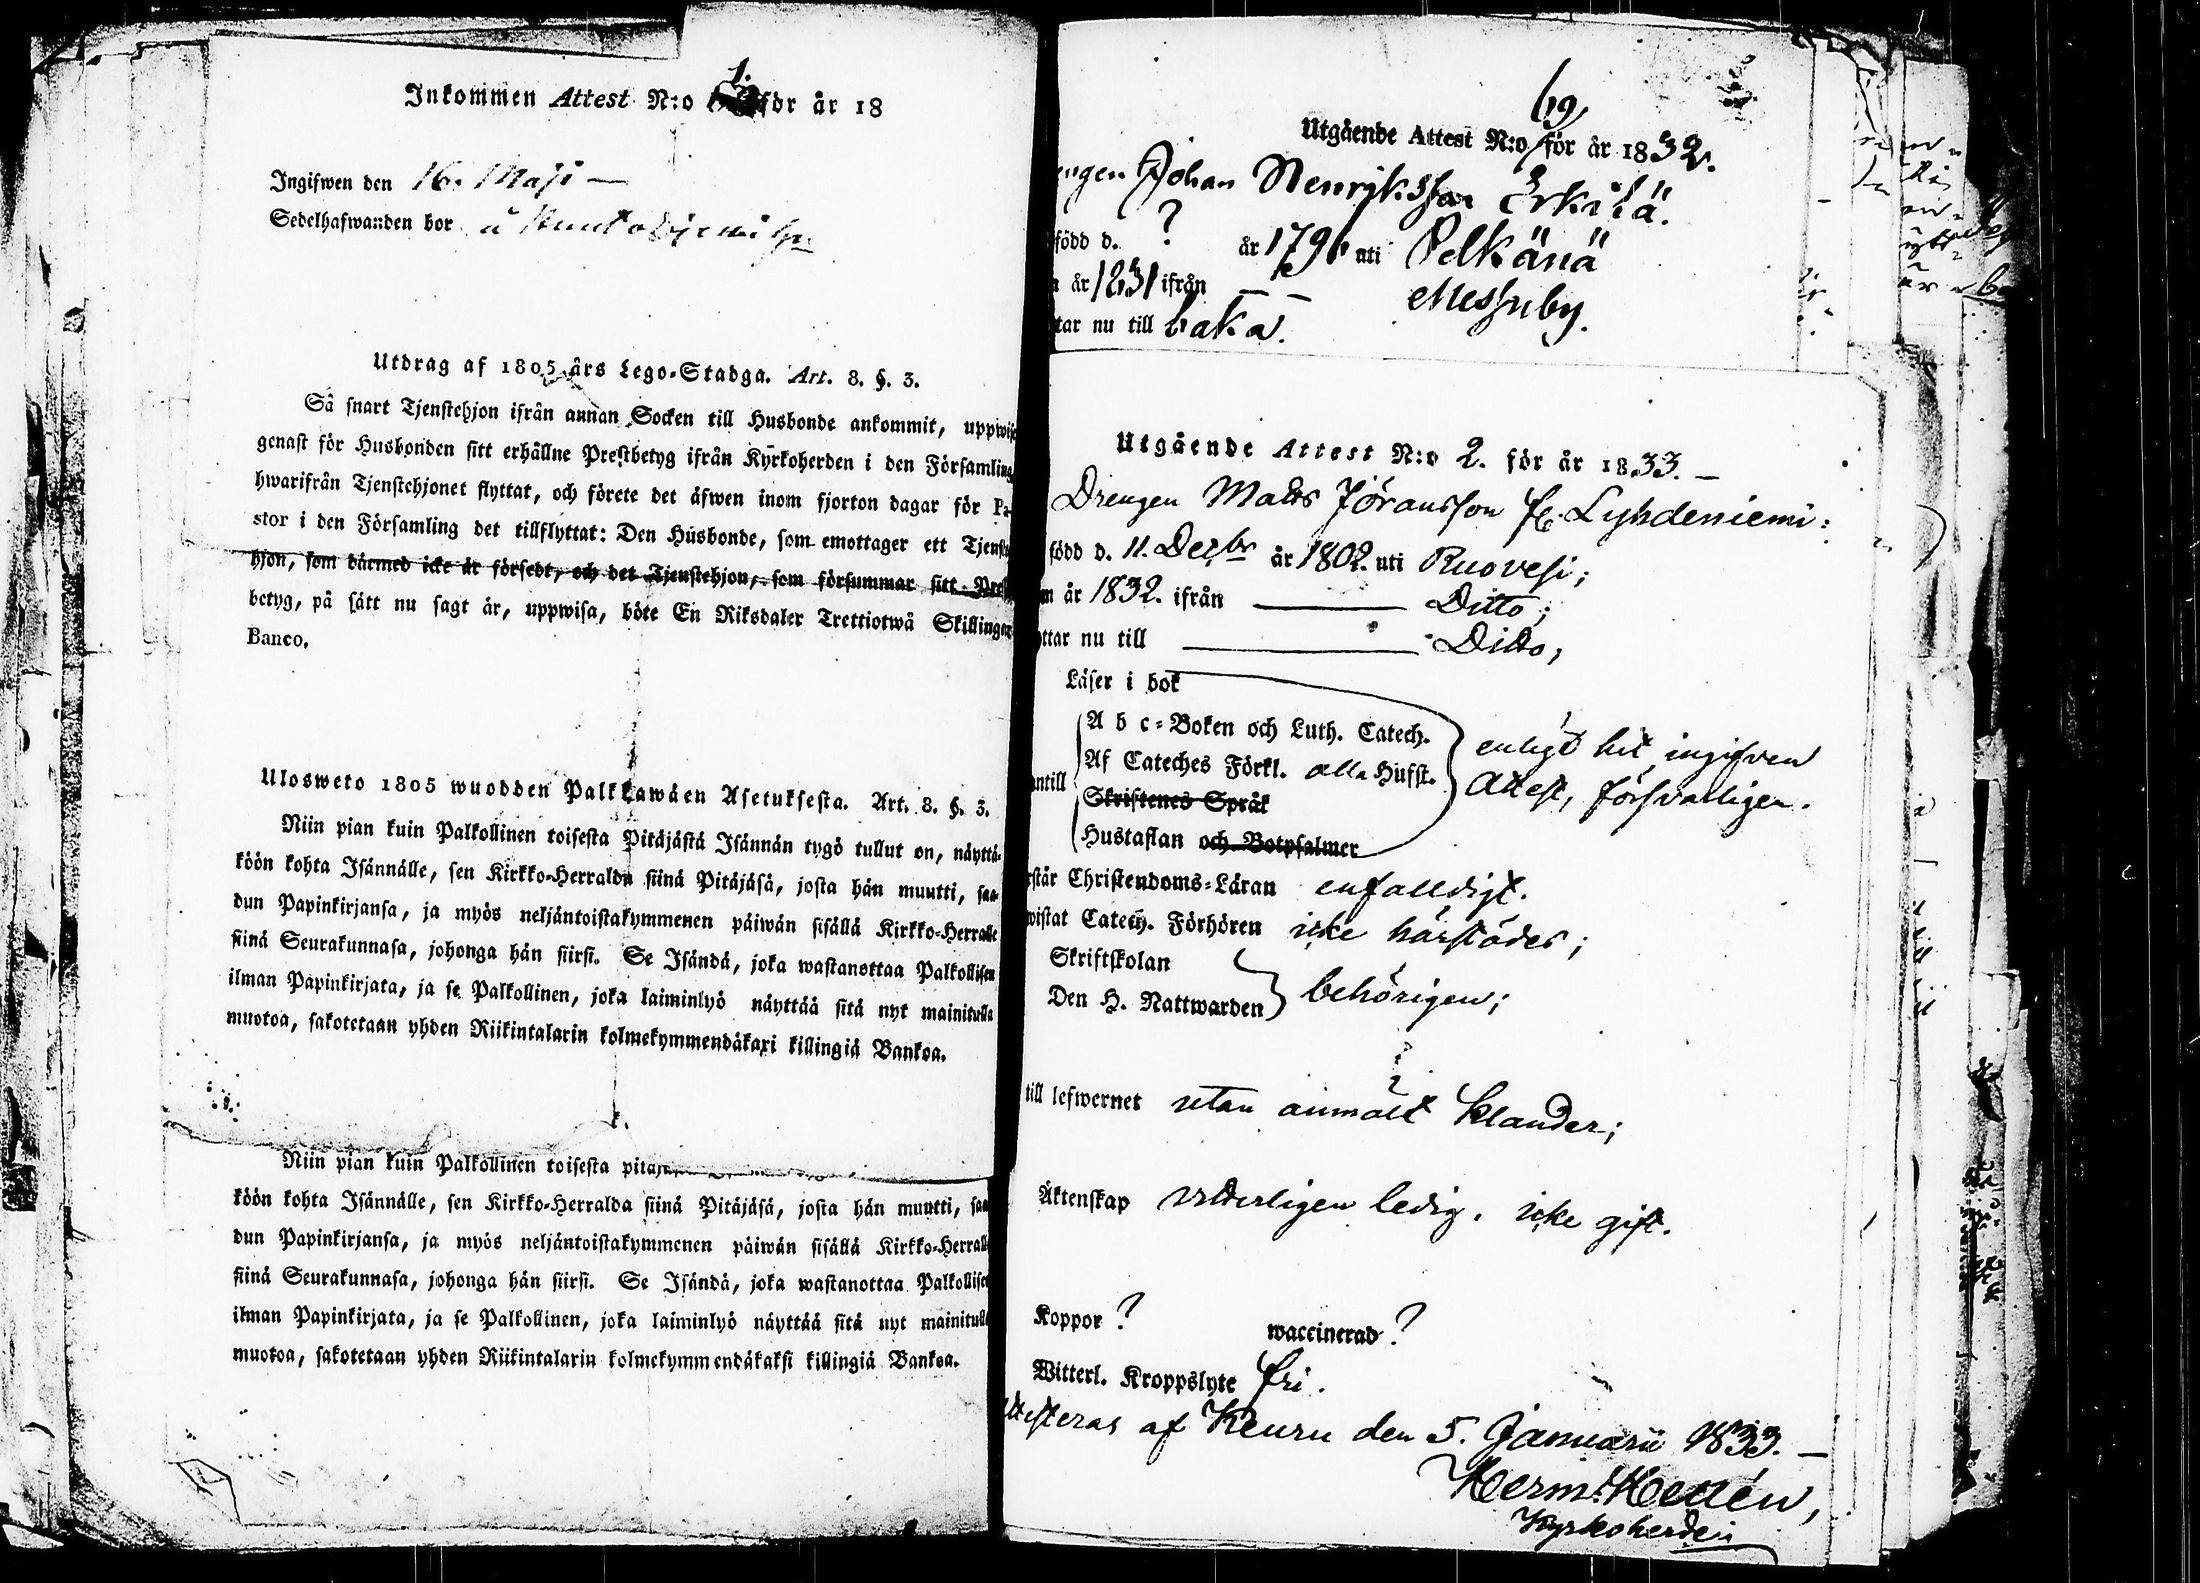 Inkommen Attest N:o 1. för år 18
Ingifwen den 16. Maji —
Sedelhafwanden bor å
Utdrag af 1805 års Lego-Stadga. Art. 8. §. 3.
Så snart Tjenstehjon ifrån annan Socken till Husbonde ankommit, uppwise
genast för Husbonden sitt erhållne Prestbetyg ifrån Kyrkoherden i den Församling
hwarifrån Tjenstehjonet flyttat, och förete det äfwen inom fjorton dagar för Pa-
stor i den Församling det tillflyttat: Den Husbonde, som emottager ett Tjenste
hjon, som därmed icke är försedt, och det Tjenstehjon, som försummar sitt Prest
betyg, på sätt nu sagt är, uppwisa, böte En Riksdaler Trettiotwå Skillingar
Banco.
Ulosweto 1805 wuodden Palkkawäen Asetuksesta. Art. 8. §. 3.
Niin pian kuin Palkollinen toisesta Pitäjästä Isännän tygö tullut on, näyttä-
köön kohta Isännälle, sen Kirkko-Herralda siinä Pitäjäsä, josta hän muutti, saa-
dun Papinkirjansa, ja myös neljäntoistakymmenen päiwän sisällä Kirkko-Herralle
siinä Seurakunnasa, johonga hän siirsi. Se Isändä, joka wastanottaa Palkollisen
ilman Papinkirjata, ja se Palkollinen, joka laiminlyö näyttää sitä nyt mainitulla
muotoa, sakotetaan yhden Riikintalarin kolmekymmendäkaxi killingiä Bankoa.
Niin pian kuin Palkollinen toisesta pitäj
köön kohta Isännälle, sen Kirkko-Herralda siinä Pitäjäsä, josta hän muutti, saa
dun Papinkirjansa, ja myös neljäntoistakymmenen päiwän sisällä Kirkko-Herrall
siinä Seurakunnasa, johonga hän siirsi. Se Isändä, joka wastanottaa Palkollisen
ilman Papinkirjata, ja se Palkollinen, joka laiminlyö näyttää sitä nyt mainitull
muotoa, sakotetaan yhden Riikintalarin kolmekymmendäkaksi killingiä Bankoa.
Utgående Attest N:o 69 för år 1832.
engen Johan Henriksson Erkilä.
född d. ? år 1796 uti Pelkänä
n år 1831 ifrån — — Messuby.
tar nu till baka.
Utgående Attest N:o 2. för år 1833. —
Drengen Mats Jöransson fr. Lyhdeniemi:
född d. 11. Decbr år 1802. uti Ruovesi;
m år 1832. ifrån ——— Ditto;
yttar nu till ——— Ditto,
Läser i bok
A b c-Boken och Luth. Catech.
Af Cateches Förkl. alla Hufst.
antill
Skriftenes Språk
Hustaflan och Botpsalmer
enligt hit ingifven
Attest, försvarligen.
rstår Christendoms-Läran enfalldigt.
wistat Catech. Förhören icke härstädes;
Skriftskolan
Den H. Nattwarden
behörigen;
till lefwernet utan anmält klander;
Äktenskap vitterligen ledig. icke gift.
Koppor ? waccinerad ?
Witterl. Kroppslyte fri.
Attesteras af Keuru den 5. Januarii 1833. —
Herm: Hellén,
Kyrkoherde